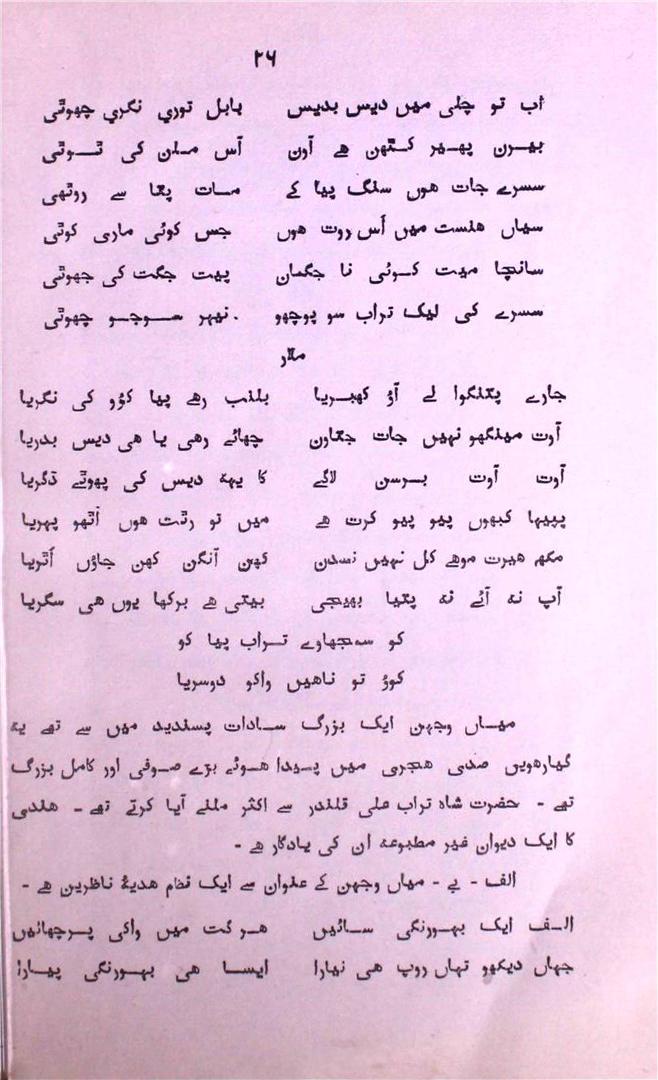 ۲۶
اب تو چلی میں دیس بدیس بابل توری نگری چھوٹی
بیرن پھیر کٹھن ہے آون آس ملن کی ٹوٹی
سسرے جات ہوں سنگ پیا کے مات پتا سے روٹھی
سیاں ہنست میں اُس روت ہوں جس کوئی ماری کوٹی
سانچا میت کوئی نا جگماں پیت جگت کی جھوٹی
سسرے کی لیک تراب سو پوچھو نیہر سوجو چھوٹی
ملار
جارے پتنگوا لے آؤ کھبریا بلنب رھے پیا کؤو کی نگریا
آوت مینگھو نہیں جات جتاون چھائے رھی یا ھی دیس بدریا
آوت آوت برسن لاگے کا یہہ دیس کی پھوٹے ڈگریا
پپیہا کبھوں پیو پیو کرت ھے میں تو رٹت ھوں اُٹھو پہریا
مکھ ھیرت موھے کل نہیں نسدن کھن آنگن کھن جاؤں اُٹریا
آپ نہ آئے نہ پتیا بھیجی بیتی ھے برکھا یوں ھی سگریا
کو سمجھاوے تراب پیا کو
کوؤ تو ناھیں واکو دوسریا
میاں وجھن ایک بزرگ سادات پسندید میں سے تھے یہ
گیارھویں صدی ھجری میں پیدا ھوئے بڑے صوفی اور کامل بزرگ
تھے - حضرت شاہ تراب علی قلندر سے اکثر ملنے آیا کرتے تھے - ھندی
کا ایک دیوان غیر مطبوعہ ان کی یادگار ھے -
الف - بے - میاں وجھن کے عنوان سے ایک نظم ھدیۂ ناظرین ھے -
الف ایک بہورنگی سائیں ھر گت میں واکی پرچھائیں
جہاں دیکھو تہاں روپ ھی نیارا ایسا ھی بہورنگی پیارا